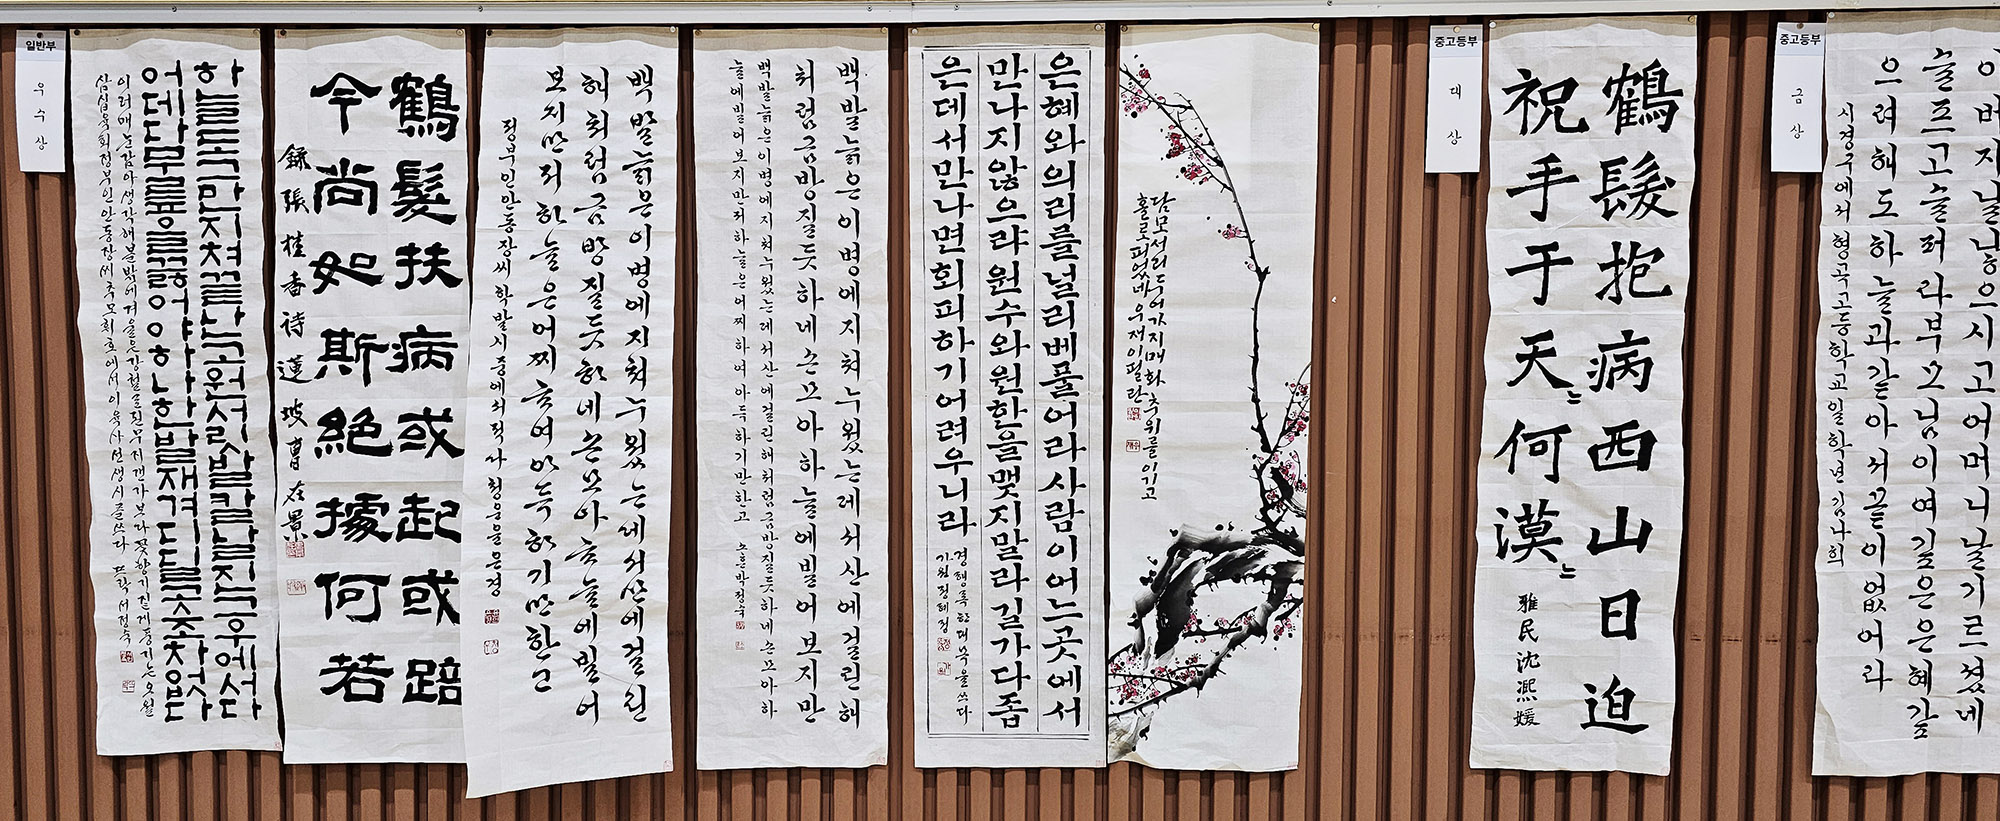 일반부
우수상
하늘도그만지쳐끝난고원서릿발칼날진그우에서다
어데다무릎을꿇어야하나한발재겨디딜곳조차없다
이러매눈감아생각해볼밖에겨울은강철로된무지갠가보다꽃향기짙게풍기는오월
삼십육회정부인안동장씨추모휘호에서이육사선생시를쓰다 뜨락서정숙
鶴髮扶病或起或踣
今尚如斯絶據何若
錄張桂香詩蓮坡曺在景
백발늙은이병에지쳐누웠는데서산에걸린
해처럼금방질듯하네손모아하늘에빌어
보지만저하늘은어찌하여아득하기만한고
정부인안동장씨학발시중에서
백발늙은이병에지쳐누웠는데서산에걸린해
처럼금방질듯하네손모아하늘에빌어보지만
백발늙은이병에지쳐누웠는데서산에걸린해처럼금방질듯하네손모아하
늘에빌어보지만저하늘은어찌하여아득하기만한고 소운박정숙
은혜와의리를널리베풀어라사람이어느곳에서
만나지않으랴원수와원한을맺지말라길가다좁
은데서만나면회피하기어려우니라
경행록한대목을쓰다
가원정혜정
담모서리두어가지매화추위를이기고
홀로피었네우재이필란
중고등부
대상
鶴髮抱病西山日迫
祝手于天〻何漠〻
雅民沈凞媛
중고등부
금상
아버지날낳으시고어머니날기르셨네
슬프고슬퍼라부모님이여깊은은혜갚
으려해도하늘과같아서끝이없어라
시경구에서 형곡고등학교일학년김나희